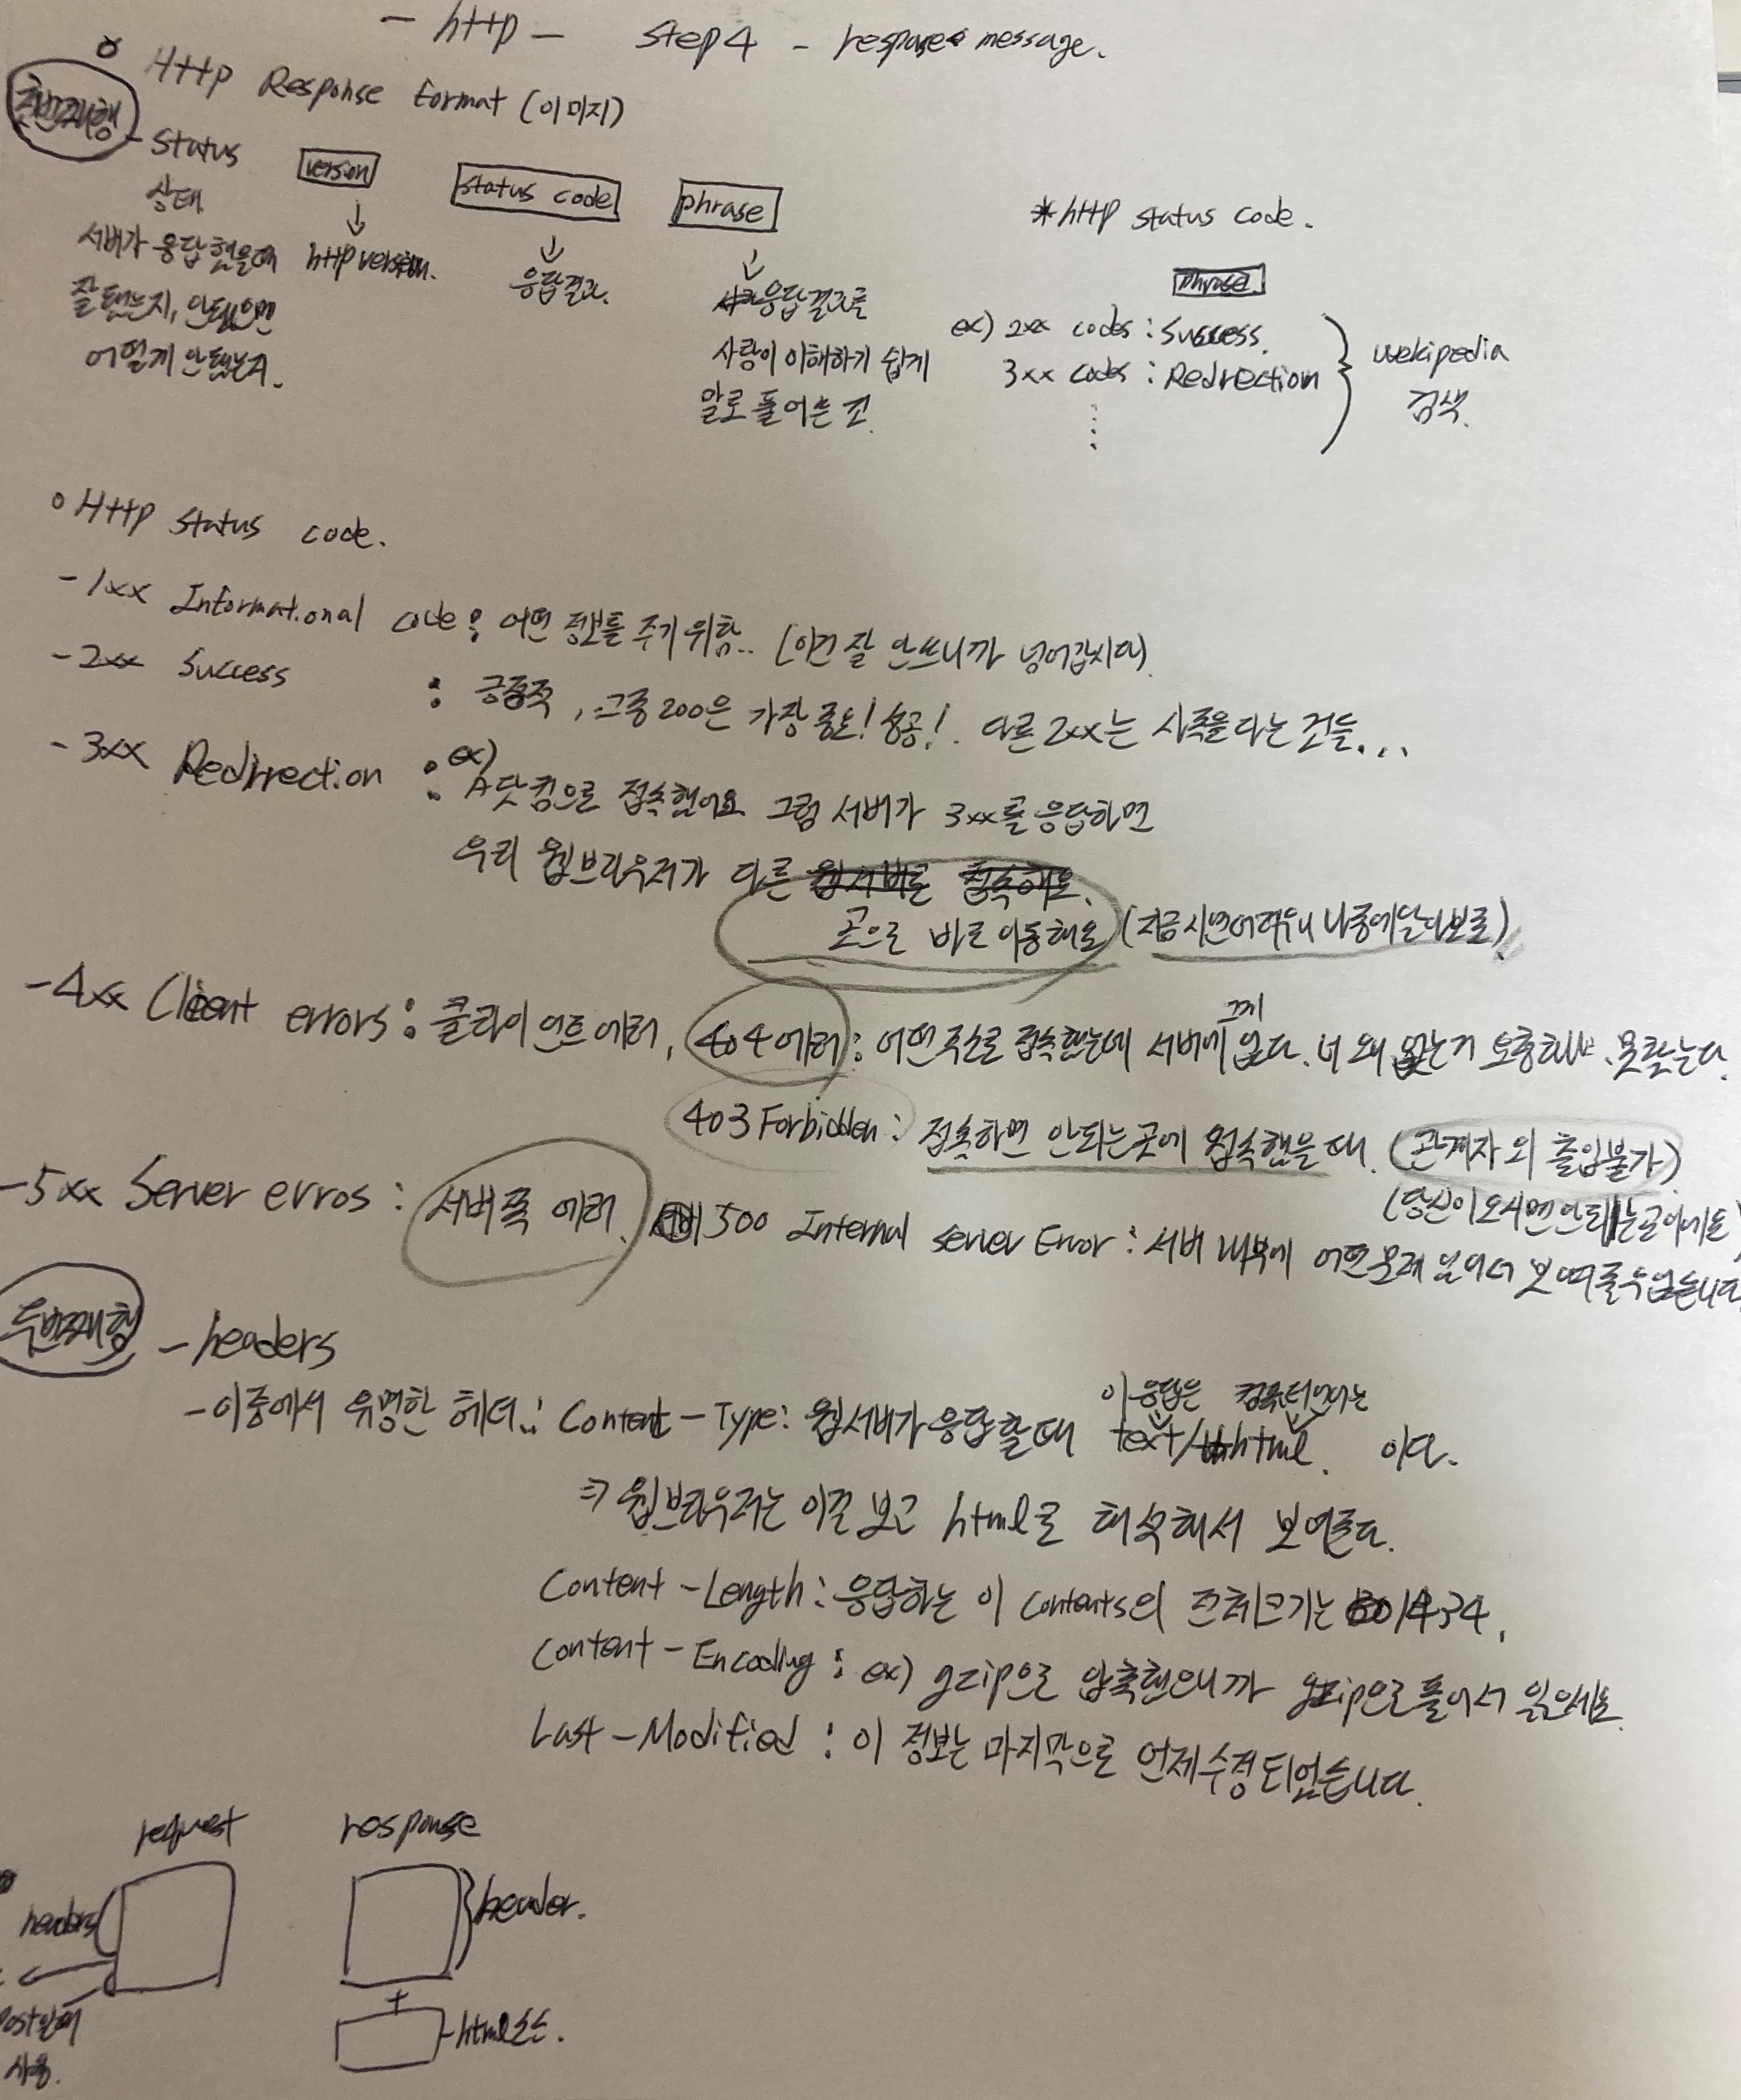 - http - step 4 - response message.
o Http Response Format (이미지)
첫번째행 - Status
version
status code
phrase
상태
서버가 응답했을때
잘됐는지, 안됐으면
어떻게 안됐는지.
↓
http version.
↓
응답결과.
↓
응답결과를
사람이 이해하기 쉽게
말로 풀어쓴 것.
*http status code.
phrase
ex) 2xx codes : Success.
3xx codes : Redirection
wekipedia
검색.
o Http status code.
- 1xx Informational code : 어떤 정보를 주기 위함.. (이건 잘 안쓰니까 넘어갑시다)
- 2xx Success : 긍정적, 그중 200은 가장 중요! 성공! 다른 2xx는 사족을 다는 것들...
- 3xx Redirrection : ex) A닷컴으로 접속했어요 그럼 서버가 3xx를 응답하면
우리 웹브라우저가 다른 웹서버로 접속해요.
곳으로 바로 이동해요 (지금시연어려우니 나중에알아보로)
- 4xx Client errors : 클라이언트 에러, 404에러 : 어떤주소로 접속했는데 서버에 그게 없다. 너 왜 없는거 요청해. 못찾는다.
403 Forbidden : 접속하면 안되는 곳에 접속했을 때. (관계자 외 출입불가)
(당신이 오시면 안되는 곳이에요)
- 5xx Server erros : 서버쪽 에러. 500 Internal server Error : 서버 내부에 어떤문제 있어서 보여줄수없습니다
두번째행 - headers
- 이중에서 유명한 헤더.: Content - Type : 웹서버가 응답할때 이 응답은 text/html. 컴퓨터언어는 이다.
⇒ 웹브라우저는 이걸 보고 html로 해석해서 보여준다.
Content - Length : 응답하는 이 contents의 전체크기는 1434.
Content - Encoding : ex) gzip으로 압축했으니까 gzip으로 풀어서 읽으세요.
Last - Modified : 이 정보는 마지막으로 언제 수정되었습니다.
request
response
headers
header.
+
html소스.
post일때
사용.